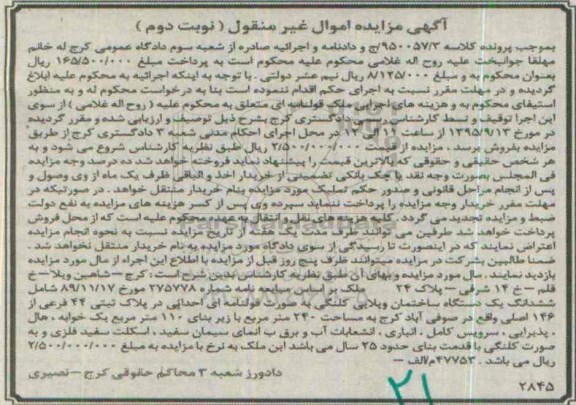 آگهی مزایده اموال غیر منقول ( نوبت دوم )
بموجب پرونده کلاسه ۹۵۰۰۵۷/۳/ج و دادنامه و اجرائیه صادره از شعبه سوم دادگاه عمومی کرج له خانم
مهلقا جوانبخت علیه روح اله غلامی محکوم علیه محکوم است به پرداخت مبلغ ۱۶۵/۵۰۰/۰۰۰ ریال
بعنوان محکوم به و مبلغ ۸/۱۲۵/۰۰۰ ریال نیم عشر دولتی . با توجه به اینکه اجرائیه به محکوم علیه ابلاغ
گردیده و در مهلت مقرر نسبت به اجرای حکم اقدام ننموده است بنا به درخواست محکوم له و به منظور
استیفای محکوم به و هزینه های اجرایی ملک قولنامه ای متعلق به محکوم علیه ( روح اله غلامی ) از سوی
این اجرا توقیف و توسط کارشناس رسمی دادگستری کرج بشرح ذیل توصیف و ارزیابی شده و مقرر گردیده
در مورخ ۱۳۹۵/۹/۱۳ از ساعت ۱۱ الی ۱۲ در محل اجرای احکام مدنی شعبه ۳ دادگستری کرج از طریق
مزایده بفروش برسد . مزایده از قیمت ۲/۵۰۰/۰۰۰/۰۰۰ ریال طبق نظریه کارشناس شروع می شود و به
هر شخص حقیقی و حقوقی که بالاترین قیمت را پیشنهاد نماید فروخته خواهد شد ده درصد وجه مزایده
فی المجلس بصورت وجه نقد یا چک بانکی تضمینی از خریدار اخذ و الباقی ظرف یک ماه از وی وصول و
پس از انجام مراحل قانونی و صدور حکم تملیک مورد مزایده بنام خریدار منتقل خواهد . در صورتیکه در
مهلت مقرر خریدار وجه مزایده را پرداخت ننماید سپرده وی پس از کسر هزینه های مزایده به نفع دولت
ضبط و مزایده تجدید می گردد . کلیه هزینه های نقل و انتقال به عهده محکوم علیه است که از محل فروش
پرداخت خواهد شد طرفین می توانند ظرف یک هفته از تاریخ مزایده نسبت به نحوه انجام مزایده
اعتراض نمایند که در اینصورت تا رسیدگی از سوی دادگاه مورد مزایده به نام خریدار منتقل نخواهد شد .
ضمنا طالبین بشرکت در مزایده میتوانند ظرف پنج روز قبل از مزایده با اطلاع این اجراء از مال مورد مزایده
بازدید نمایند . مال مورد مزایده و بهای آن طبق نظریه کارشناس بدین شرح است : کرج – شاهین ویلا – خ
قلم – خ ۱۴ شرقی – پلاک ۲۴ ملک بر اساس مبایعه نامه شماره ۲۷۵۷۷۸ مورخ ۸۹/۱۱/۱۷ شامل
ششدانگ یک دستگاه ساختمان ویلایی کلنگی به صورت قولنامه ای احداثی در پلاک ثبتی ۴۴ فرعی از
۱۴۶ اصلی واقع در صوفی آباد کرج به مساحت ۲۴۰ متر مربع با زیر بنای ۱۱۰ متر مربع یک خوابه . هال
. پذیرایی . سرویس کامل . انباری . انشعابات آب و برق ب انمای سیمان سفید . اسکلت سفید فلزی و به
صورت کلنگی با قدمت بنای حدود ۲۵ سال می باشد این ملک به نرخ با مزایده به مبلغ ۲/۵۰۰/۰۰۰/۰۰۰
ریال می باشد . ۴۷۷۵۳م/الف –
دادورز شعبه ۳ محاکم حقوقی کرج – نصیری
۲۱
۲۸۴۵